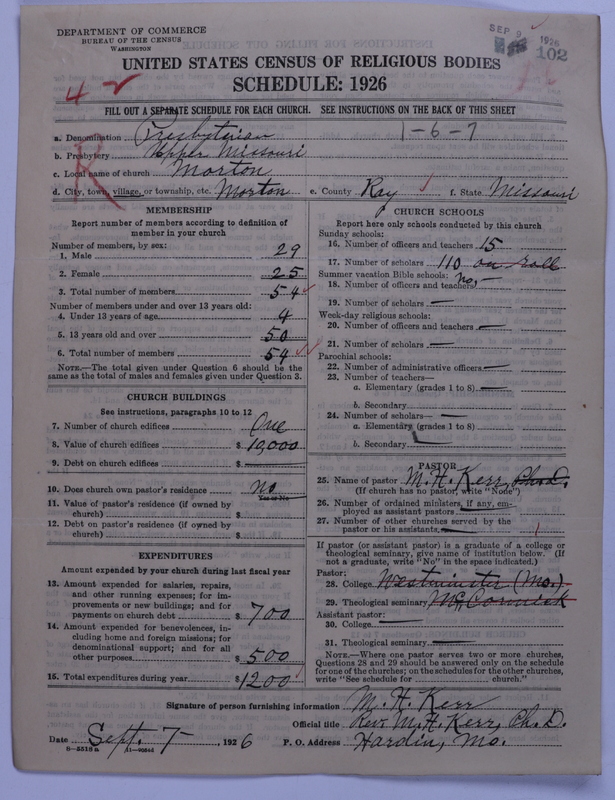 DEPARTMENT OF COMMERCE
BUREAU OF THE CENSUS
WASHINGTON
SEP 9 1926
102
UNITED STATES CENSUS OF RELIGIOUS BODIES
SCHEDULE: 1926
4-2
FILL OUT A SEPARATE SCHEDULE FOR EACH CHURCH. SEE INSTRUCTIONS ON THE BACK OF THIS SHEET
R
1-6-7
a. Denomination Presbyterian
b. Presbytery Upper Missouri
c. Local name of church Morton
d. City, town, village, or township, etc. Morton e. County Ray f. State Missouri
MEMBERSHIP
Report number of members according to definition of
member in your church
Number of members, by sex:
1. Male 29
2. Female 25
3. Total number of members 54
Number of members under and over 13 years old:
4. Under 13 years of age 4
5. 13 years old and over 50
6. Total number of members 54
NOTE.—The total given under Question 6 should be
same as the total of males and females given under Question 3.
CHURCH BUILDINGS
See instructions, paragraphs 10 to 12
7. Number of church edifices One
8. Value of church edifices $ 10,000
9. Debt on church edifices $ —
10. Does church own pastor's residence No
Yes or No
11. Value of pastor's residence (if owned by
church) $
12. Debt on pastor's residence (if owned by
church) $
EXPENDITURES
Amount expended by your church during last fiscal year
13. Amount expended for salaries, repairs,
and other running expenses; for im-
provements or new buildings; and for
payments on church debt $ 700
14. Amount expended for benevolences, in-
cluding home and foreign missions; for
denominational support; and for all
other purposes $ 500
15. Total expenditures during year $ 1200
CHURCH SCHOOLS
Report here only schools conducted by this church
Sunday schools:
16. Number of officers and teachers 15
17. Number of scholars 110 on roll
Summer vacation Bible schools: No,—
18. Number of officers and teachers
19. Number of scholars —
Week-day religious schools:
20. Number of officers and teachers —
21. Number of scholars —
Parochial schools:
22. Number of administrative officers —
23. Number of teachers—
a. Elementary (grades 1 to 8) —
b. Secondary
24. Number of scholars — —
a. Elementary (grades 1 to 8)
b. Secondary
PASTOR
25. Name of pastor M. H. Kerr, Ph.D.
(If church has no pastor, write "None")
26. Number of ordained ministers, if any, em-
ployed as assistant pastors —
27. Number of other churches served by the
pastor or his assistants —
If pastor (or assistant pastor) is a graduate of a college or
theological seminary, give name of institution below. (If
not a graduate, write "No" in the space indicated.)
Pastor:
28. College Westminster (Mo.)
29. Theological seminary McCormick
Assistant pastor:
30. College —
31. Theological seminary —
NOTE.—Where one pastor serves two or more churches,
Questions 28 and 29 should be answered only on the schedule
for one of the churches; on the schedules for the other churches,
write "See schedule for church."
Signature of person furnishing information M. H. Kerr
Official title Rev. M. H. Kerr, Ph.D.
Date Sept. 7 - , 1926 P. O. Address Hardin, Mo.
8-2518a 11-20644